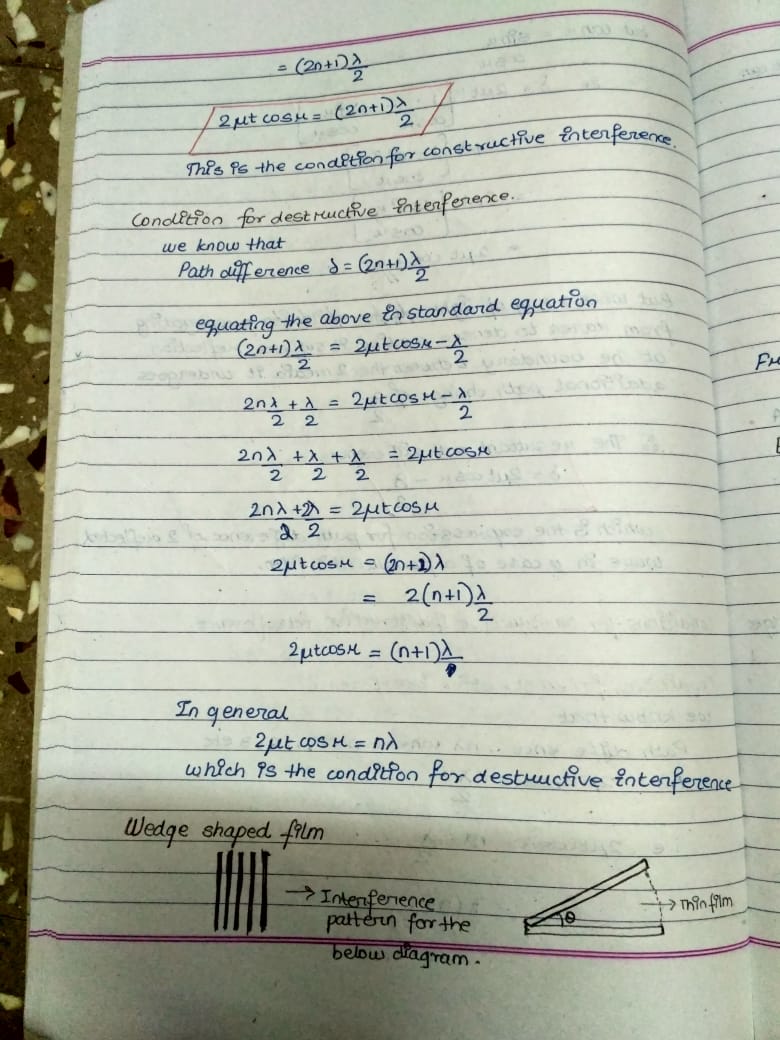 = (2n+1) λ/2
2μt cos r = (2n+1) λ/2
This is the condition for constructive interference.
Condition for destructive interference.
we know that
Path difference δ = (2n+1) λ/2
equating the above in standard equation
(2n+1) λ/2 = 2μt cos r - λ/2
2nλ/2 + λ/2 = 2μt cos r - λ/2
2nλ/2 + λ/2 + λ/2 = 2μt cos r
2nλ/2 + 2λ/2 = 2μt cos r
2μt cos r = (2n+2) λ
= 2(n+1) λ/2
2μt cos r = (n+1) λ
In general
2μt cos r = nλ
which is the condition for destructive interference
Wedge shaped film
→ Interference
pattern for the
below diagram.
θ
→ Thin film